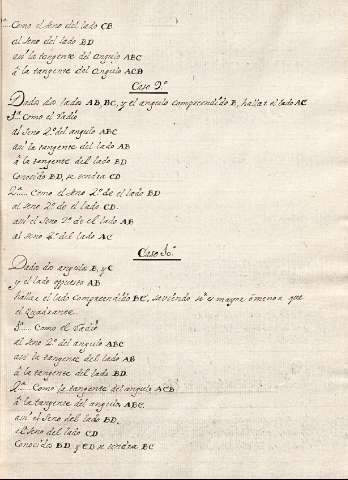 .... Como el seno del lado CB
al seno del lado BD
asi la tangente del angulo ABC
â la tangente del angulo ACB
Caso 9.º
Dados dos lados AB, BC, y el angulo comprendido B, hallar el lado AC
1.º Como el radio
al seno 2.º del angulo ABC
asi la tangente del lado AB
â la tangente del lado BD.
Conocido BD, se tendra CD
2.º.... Como el seno 2.º de el lado BD
al seno 2.º de el lado CD.
asi el seno 2.º de el lado AB
al seno 2.º del lado AC
Caso 10.º
Dados dos angulos B, y C
y el lado opuesto AB
hallar el lado comprendido BC, saviendo si es mayor ô menor que
el Quadrante.
1.º.... Como el radio
al seno 2.º del angulo ABC
asi la tangente del lado AB
â la tangente del lado BD.
2.º.... Como la tangente del angulo ACB
â la tangente del angulo ABC.
asi el seno del lado BD.
al seno del lado CD
Conocidos BD, y CD se tendra BC